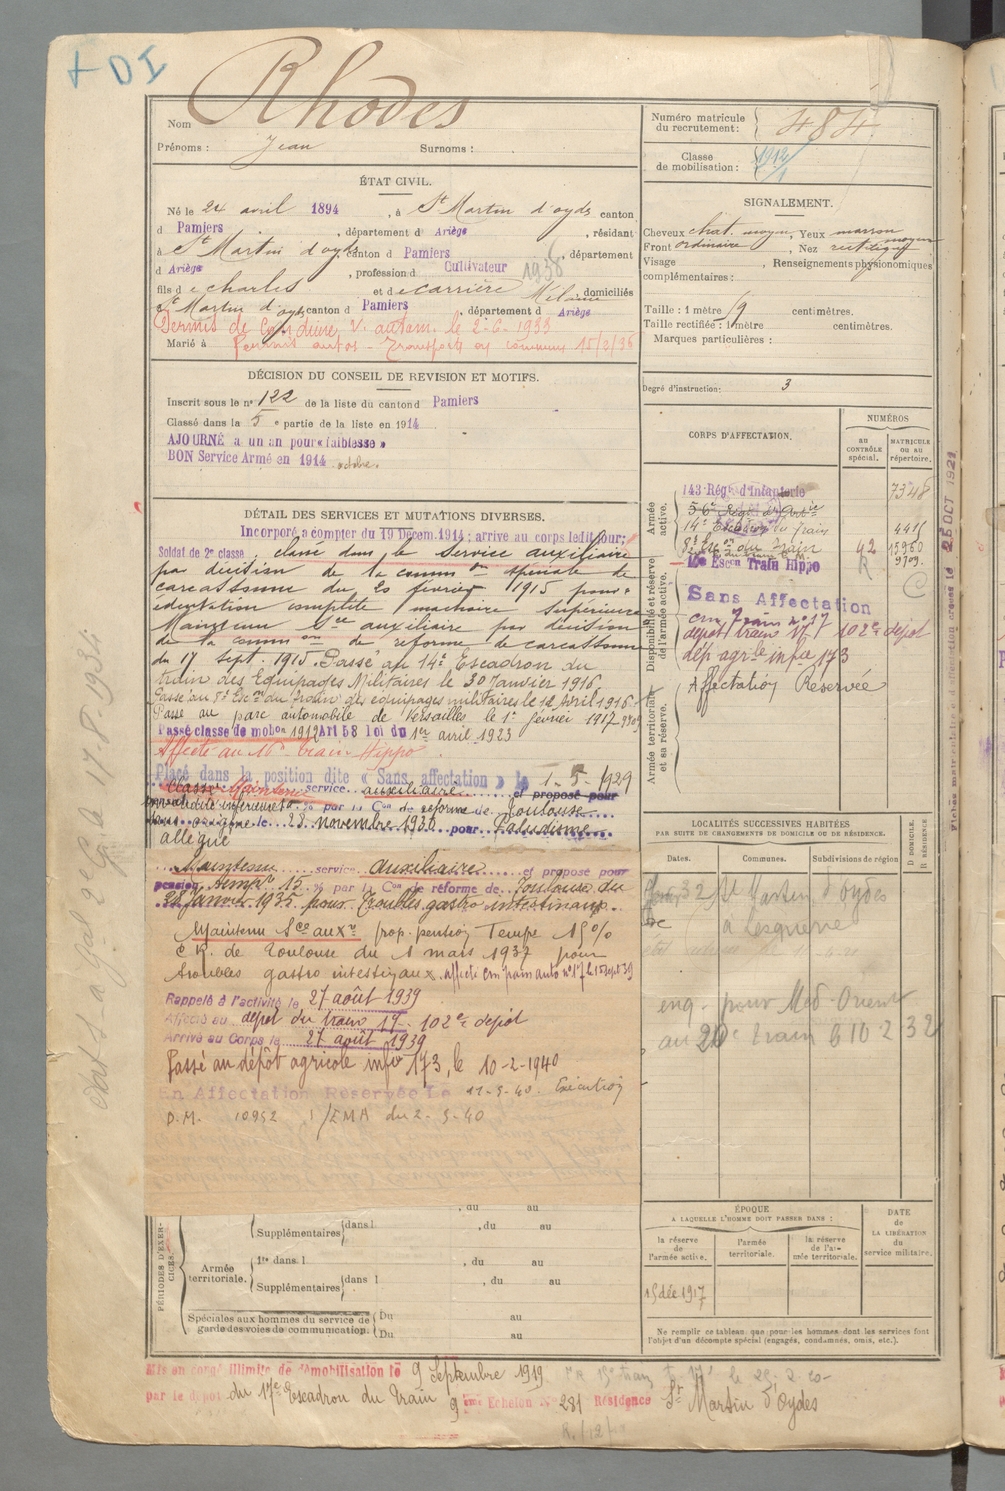 + DI
Nom Rhodes
Prénoms : Jean Surnoms :
Numéro matricule du recrutement : 484
Classe de mobilisation : 1912
ÉTAT CIVIL.
Né le 24 avril 1894, à St Martin d'oyds canton
d Pamiers, département d Ariège, résidant
à St Martin d'oyds canton d Pamiers, département
d Ariège, profession d Cultivateur 1938
fils d e charles et d e carrière Mélanie, domiciliés
St Martin d'oyds canton d Pamiers, département d Ariège
Permis de Conduire V. autom. le 2-6-1933
Marié à Permis autos - Transports en commun 15/2/36
SIGNALEMENT.
Cheveux chat. moyen, Yeux marron moyen
Front ordinaire, Nez rectiligne
Visage , Renseignements physionomiques
complémentaires :
Taille : 1 mètre centimètres.
Taille rectifiée : 1 mètre centimètres.
Marques particulières :
Degré d'instruction : 3
DÉCISION DU CONSEIL DE REVISION ET MOTIFS.
Inscrit sous le n° 122 de la liste du canton d Pamiers
Classé dans la 5 e partie de la liste en 1914
AJOURNÉ à un an pour « faiblesse »
BON Service Armé en 1914 octobre.
DÉTAIL DES SERVICES ET MUTATIONS DIVERSES.
Incorporé à compter du 19 Décem. 1914 ; arrivé au corps le dit jour ;
Soldat de 2e classe ; classé dans le Service auxiliaire
par décision de la common spéciale de
carcassonne du 20 février 1915 pour :
édentation complète machoire supérieure
Maintenu Sce auxiliaire par décision
de la common de reforme de carcassonne
du 17 sept. 1915. Passé au 14e Escadron du
train des Equipages Militaires le 30 Janvier 1916.
Passé au 8e Esc on du Train des équipages militaires le 12 Avril 1916.
Passé au parc automobile de Versailles le 1er février 1917
Passé classe de mobon 1912 Art 58 loi du 1er avril 1923
Affecté au 16e train Hippo
Placé dans la position dite « Sans affectation » le 1-5-1929
Classé Maintenu service auxiliaire et proposé pour
invalidité inférieure à % par la Con de réforme de Toulouse
le 28 novembre 1930 pour Paludisme
allégué
Maintenu service auxiliaire et proposé pour
pension temp. 15 % par la Con de réforme de Toulouse du
28 Janvier 1935 pour Troubles gastro intestinaux.
Maintenu Sce auxre prop. pention Tempe 15%
C. R. de Toulouse du 1 mars 1937 pour
troubles gastro intestinaux. affecté cm train auto n° 17 le 15 sept 39
Rappelé à l'activité le 27 août 1939
Affecté au dépôt du train 17. 102e dépôt
Arrivé au Corps le 27 août 1939
Passé au dépôt agricole infie 173, le 10-2-1940
En Affectation Réservée Le 11-5-40. Exécution
D.M. 10952 1/EMA du 2-5-40
CORPS D'AFFECTATION.
NUMÉROS
au CONTRÔLE spécial.
MATRICULE ou au répertoire.
Armée active.
143 Régt d'Infanterie 7348
14e Escadron du train
8e Esc on du Train 42 15950
16e Escon Train Hippo R 9709.
Disponibilité et réserve de l'armée active.
Sans Affectation
cm Train n° 17
dépôt train 17 102e dépôt
dép agrle infie 173
Armée territoriale et sa réserve.
Affectation Réservée
LOCALITÉS SUCCESSIVES HABITÉES
PAR SUITE DE CHANGEMENTS DE DOMICILE OU DE RÉSIDENCE.
Dates. Communes. Subdivisions de région
D DOMICILE. R RÉSIDENCE
32 St Martin d'Oydes
à Lesguerre
eng. pour Med-Orient
au 20e train 6 10 2 32
ÉPOQUE
A LAQUELLE L'HOMME DOIT PASSER DANS :
DATE de LA LIBÉRATION du service militaire.
la réserve de l'armée active.
l'armée territoriale.
la réserve de l'armée territoriale.
15 déc 1917
Ne remplir ce tableau que pour les hommes dont les services font
l'objet d'un décompte spécial (engagés, condamnés, omis, etc.).
PÉRIODES D'EXERCICES.
, du au
Supplémentaires dans l , du au
Armée territoriale.
1re dans l , du au
Supplémentaires dans l , du au
Spéciales aux hommes du service de garde des voies de communication.
Du au
Du au
Mis en congé illimité de démobilisation le 9 Septembre 1919
par le dépôt du 17e Escadron du Train 9 ème Echelon N° 281 Résidence St Martin d'Oydes